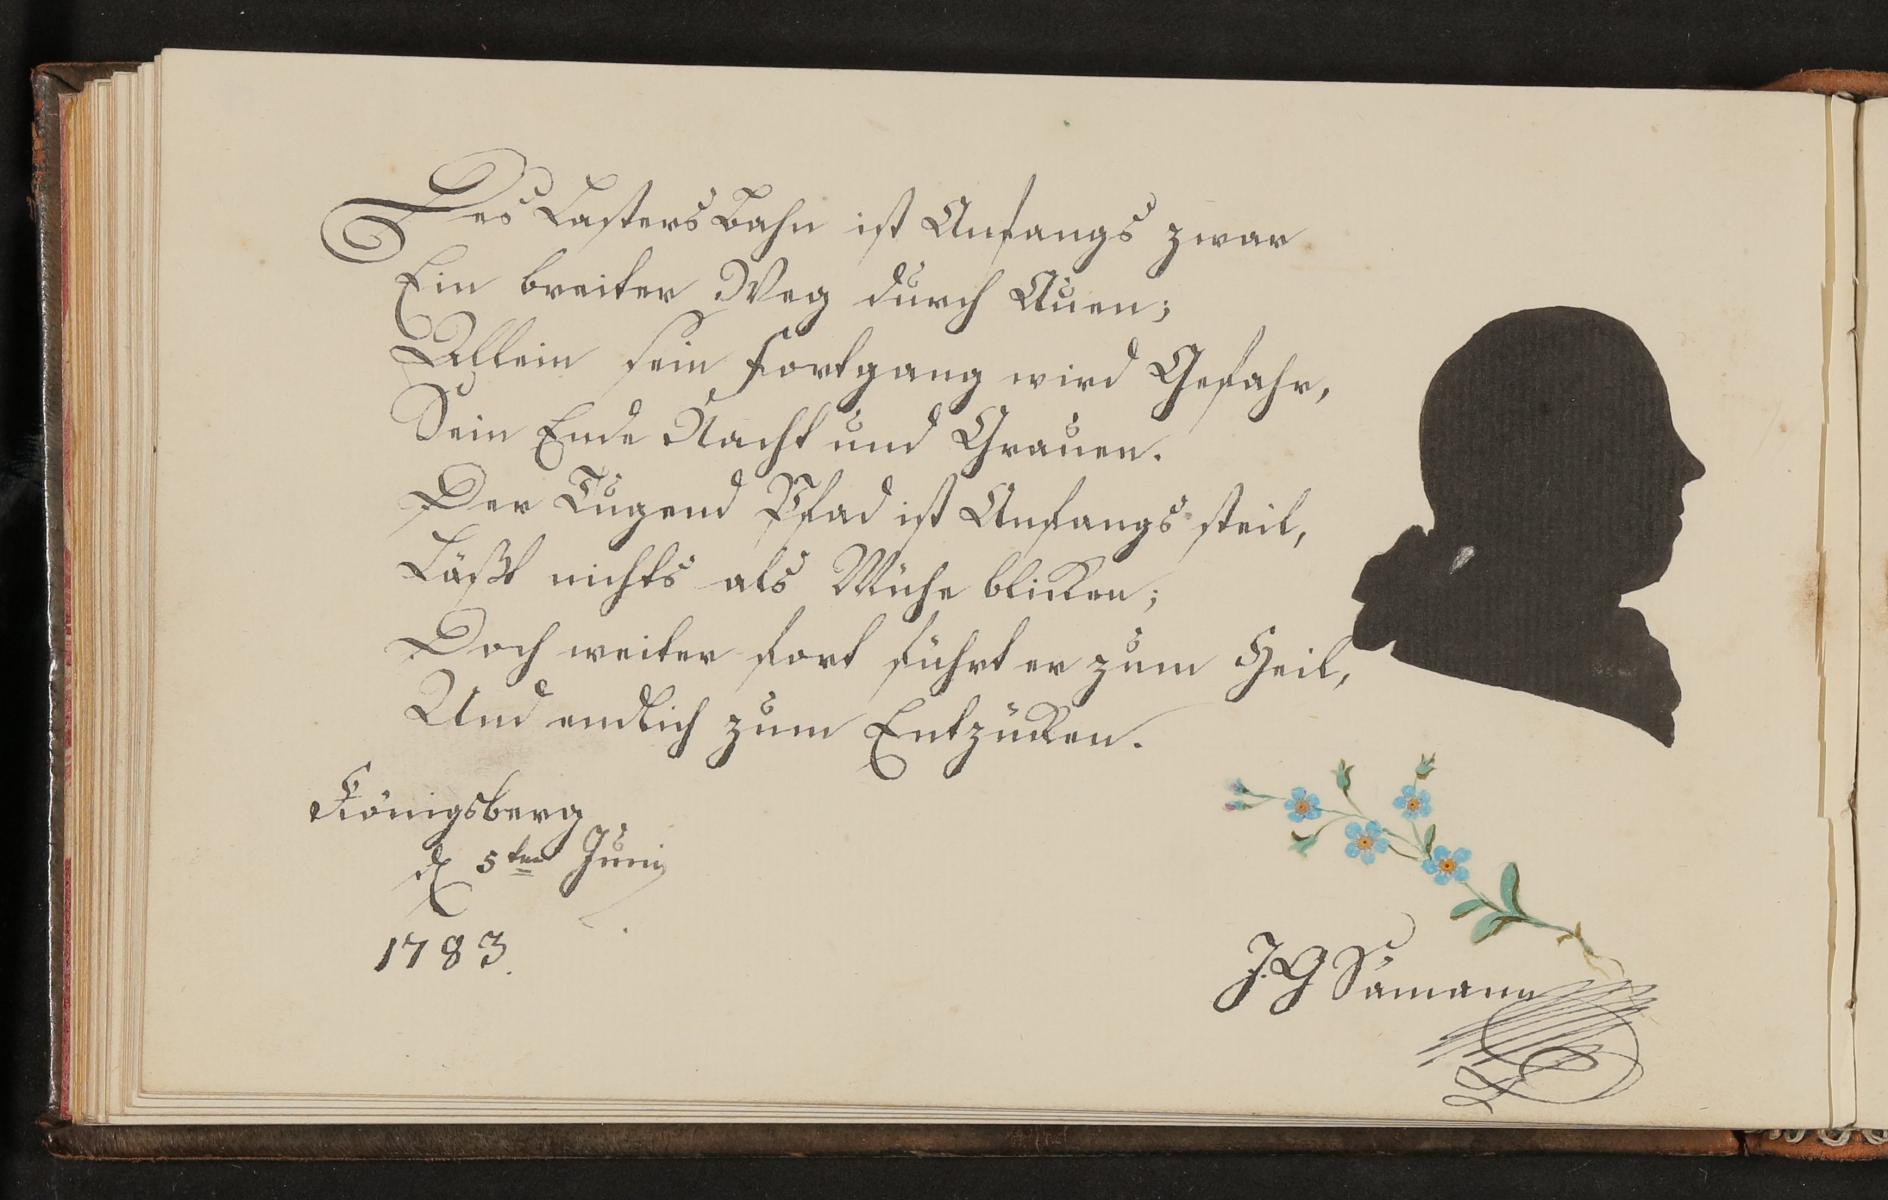 Des Lasters Bahn ist Anfangs zwar
Ein breiter Weg durch Auen;
Allein sein Fortgang wird Gefahr,
Sein Ende Nacht und Grauen.
Der Tugend Pfad ist Anfangs steil,
Läßt nichts als Mühe blicken;
Doch weiter fort führt er zum Heil,
Und endlich zum Entzücken.
Königsberg
d 5ten Junij
1783.
J. G Sämann